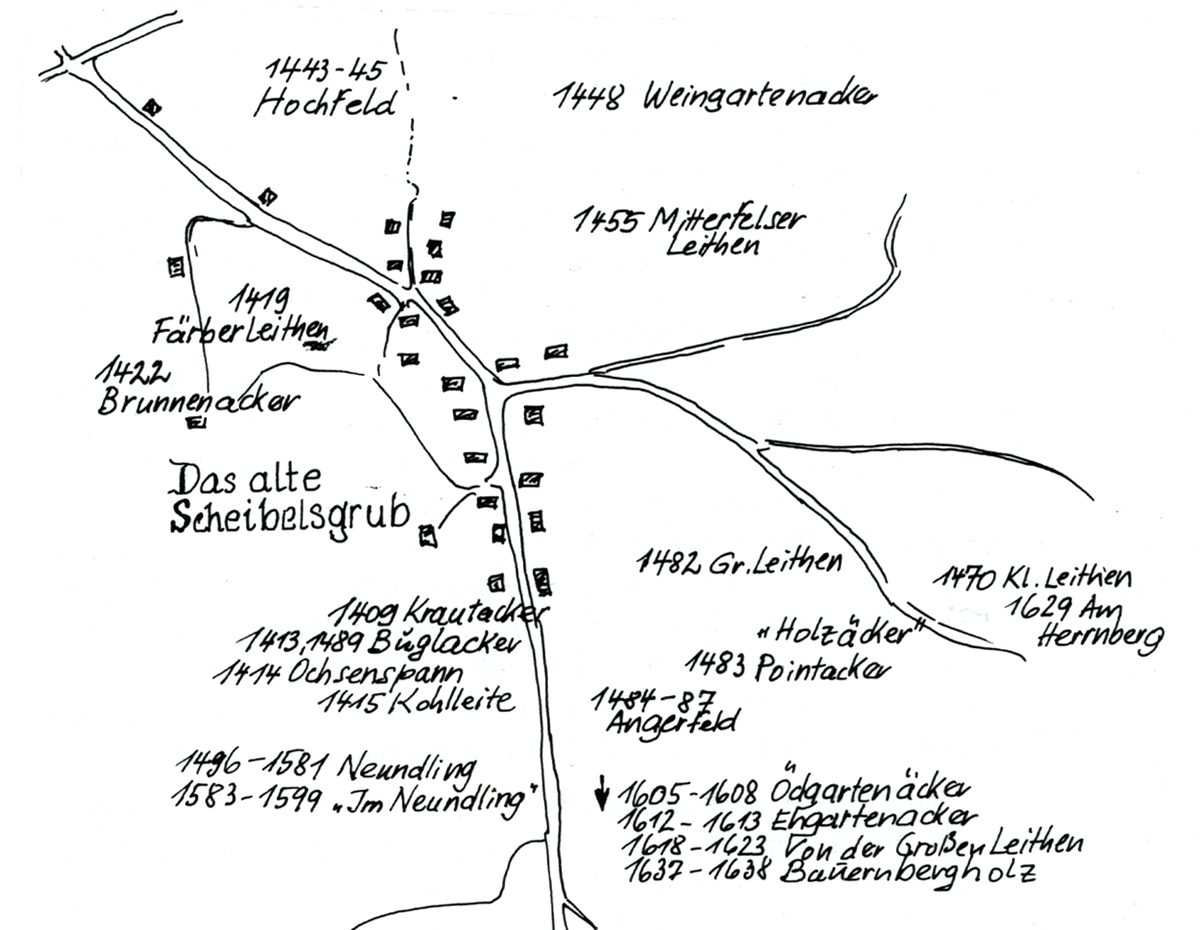 1443-45
Hochfeld
1448 Weingartenacker
1455 Mitterfelser
Leithen
1419
Färberleithen
1422
Brunnenacker
Das alte
Scheibelsgrub
1482 Gr. Leithen
1470 Kl. Leithen
1629 Am
Herrnberg
"Holzäcker"
1483 Pointacker
1409 Krautacker
1413, 1489 Buglacker
1414 Ochsenspann
1415 Kohlleite
1484-87
Angerfeld
1496-1581 Neundling
1583-1599 „Im Neundling"
1605-1608 Ödgartenäcker
1612-1613 Ehgartenacker
1618-1623 Von der Großen Leithen
1637-1638 Bauernbergholz